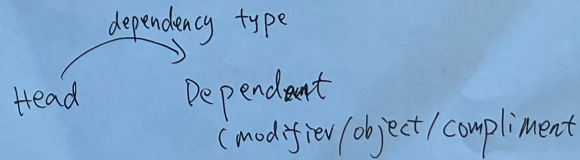 dependency type
Head Dependent
(modifier/object/compliment